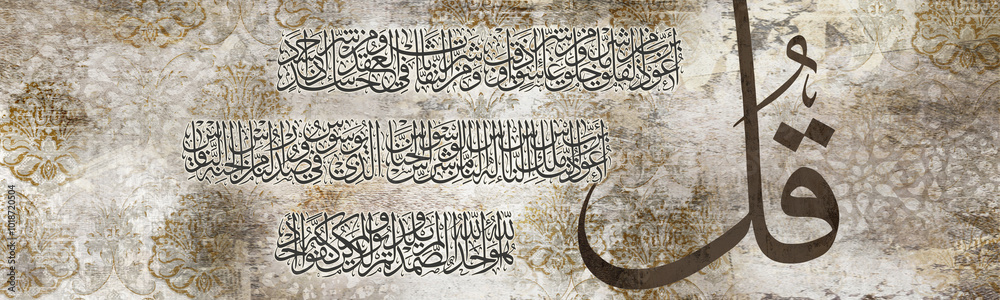 قُل
أعوذ برب الفلق من شر ما خلق ومن شر غاسق إذا وقب ومن شر النفاثات في العقد ومن شر حاسد إذا حسد
أعوذ برب الناس ملك الناس إله الناس من شر الوسواس الخناس الذي يوسوس في صدور الناس من الجنة والناس
هو الله أحد الله الصمد لم يلد ولم يولد ولم يكن له كفوا أحد
Adobe Stock | #1018720504